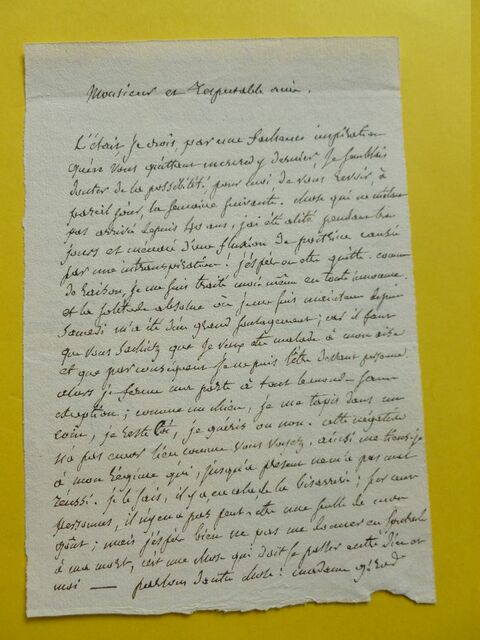 Monsieur et respectable ami.
L'était je crois, par une facheuse inspiration
qu'en vous quittant mercredy dernier, je semblais
douter de la possibilité, pour moi, de vous revoir, à
pareil jour, la semaine suivante. chose qui ne m'était
pas arrivée depuis 40 ans, j'ai été alité pendant trois
jours et menacé d'une fluxion de poitrine causée
par une intranspiration! j'espère en être quitte. comme
de raison, je me suis traité moi même en toute
et la solitude absolue où je me suis maintenu depuis
samedi m'a été d'un grand soulagement; car il faut
que vous sachiez que je veux être malade à mon aise
et que par conséquent je ne puis l'être devant personne
alors je ferme ma porte à tout le monde sans
exception; comme un chien, je me tapis dans un
coin, je reste là, je guéris ou non. cette négative
n'a pas encore lieu comme vous voyez, aussi me tiens-je
à mon régime qui, jusqu'à présent ne m'a pas mal
réussi. je le sais, il y a en cela de la bizarrerie; sur cent
personnes, il n'y en a pas peut-être une seule de mon
goût; mais j'espère bien ne pas me donner en spectacle
à ma mort, c'est une chose qui doit se passer entre dieu et
moi — parlons d'autre chose: madame